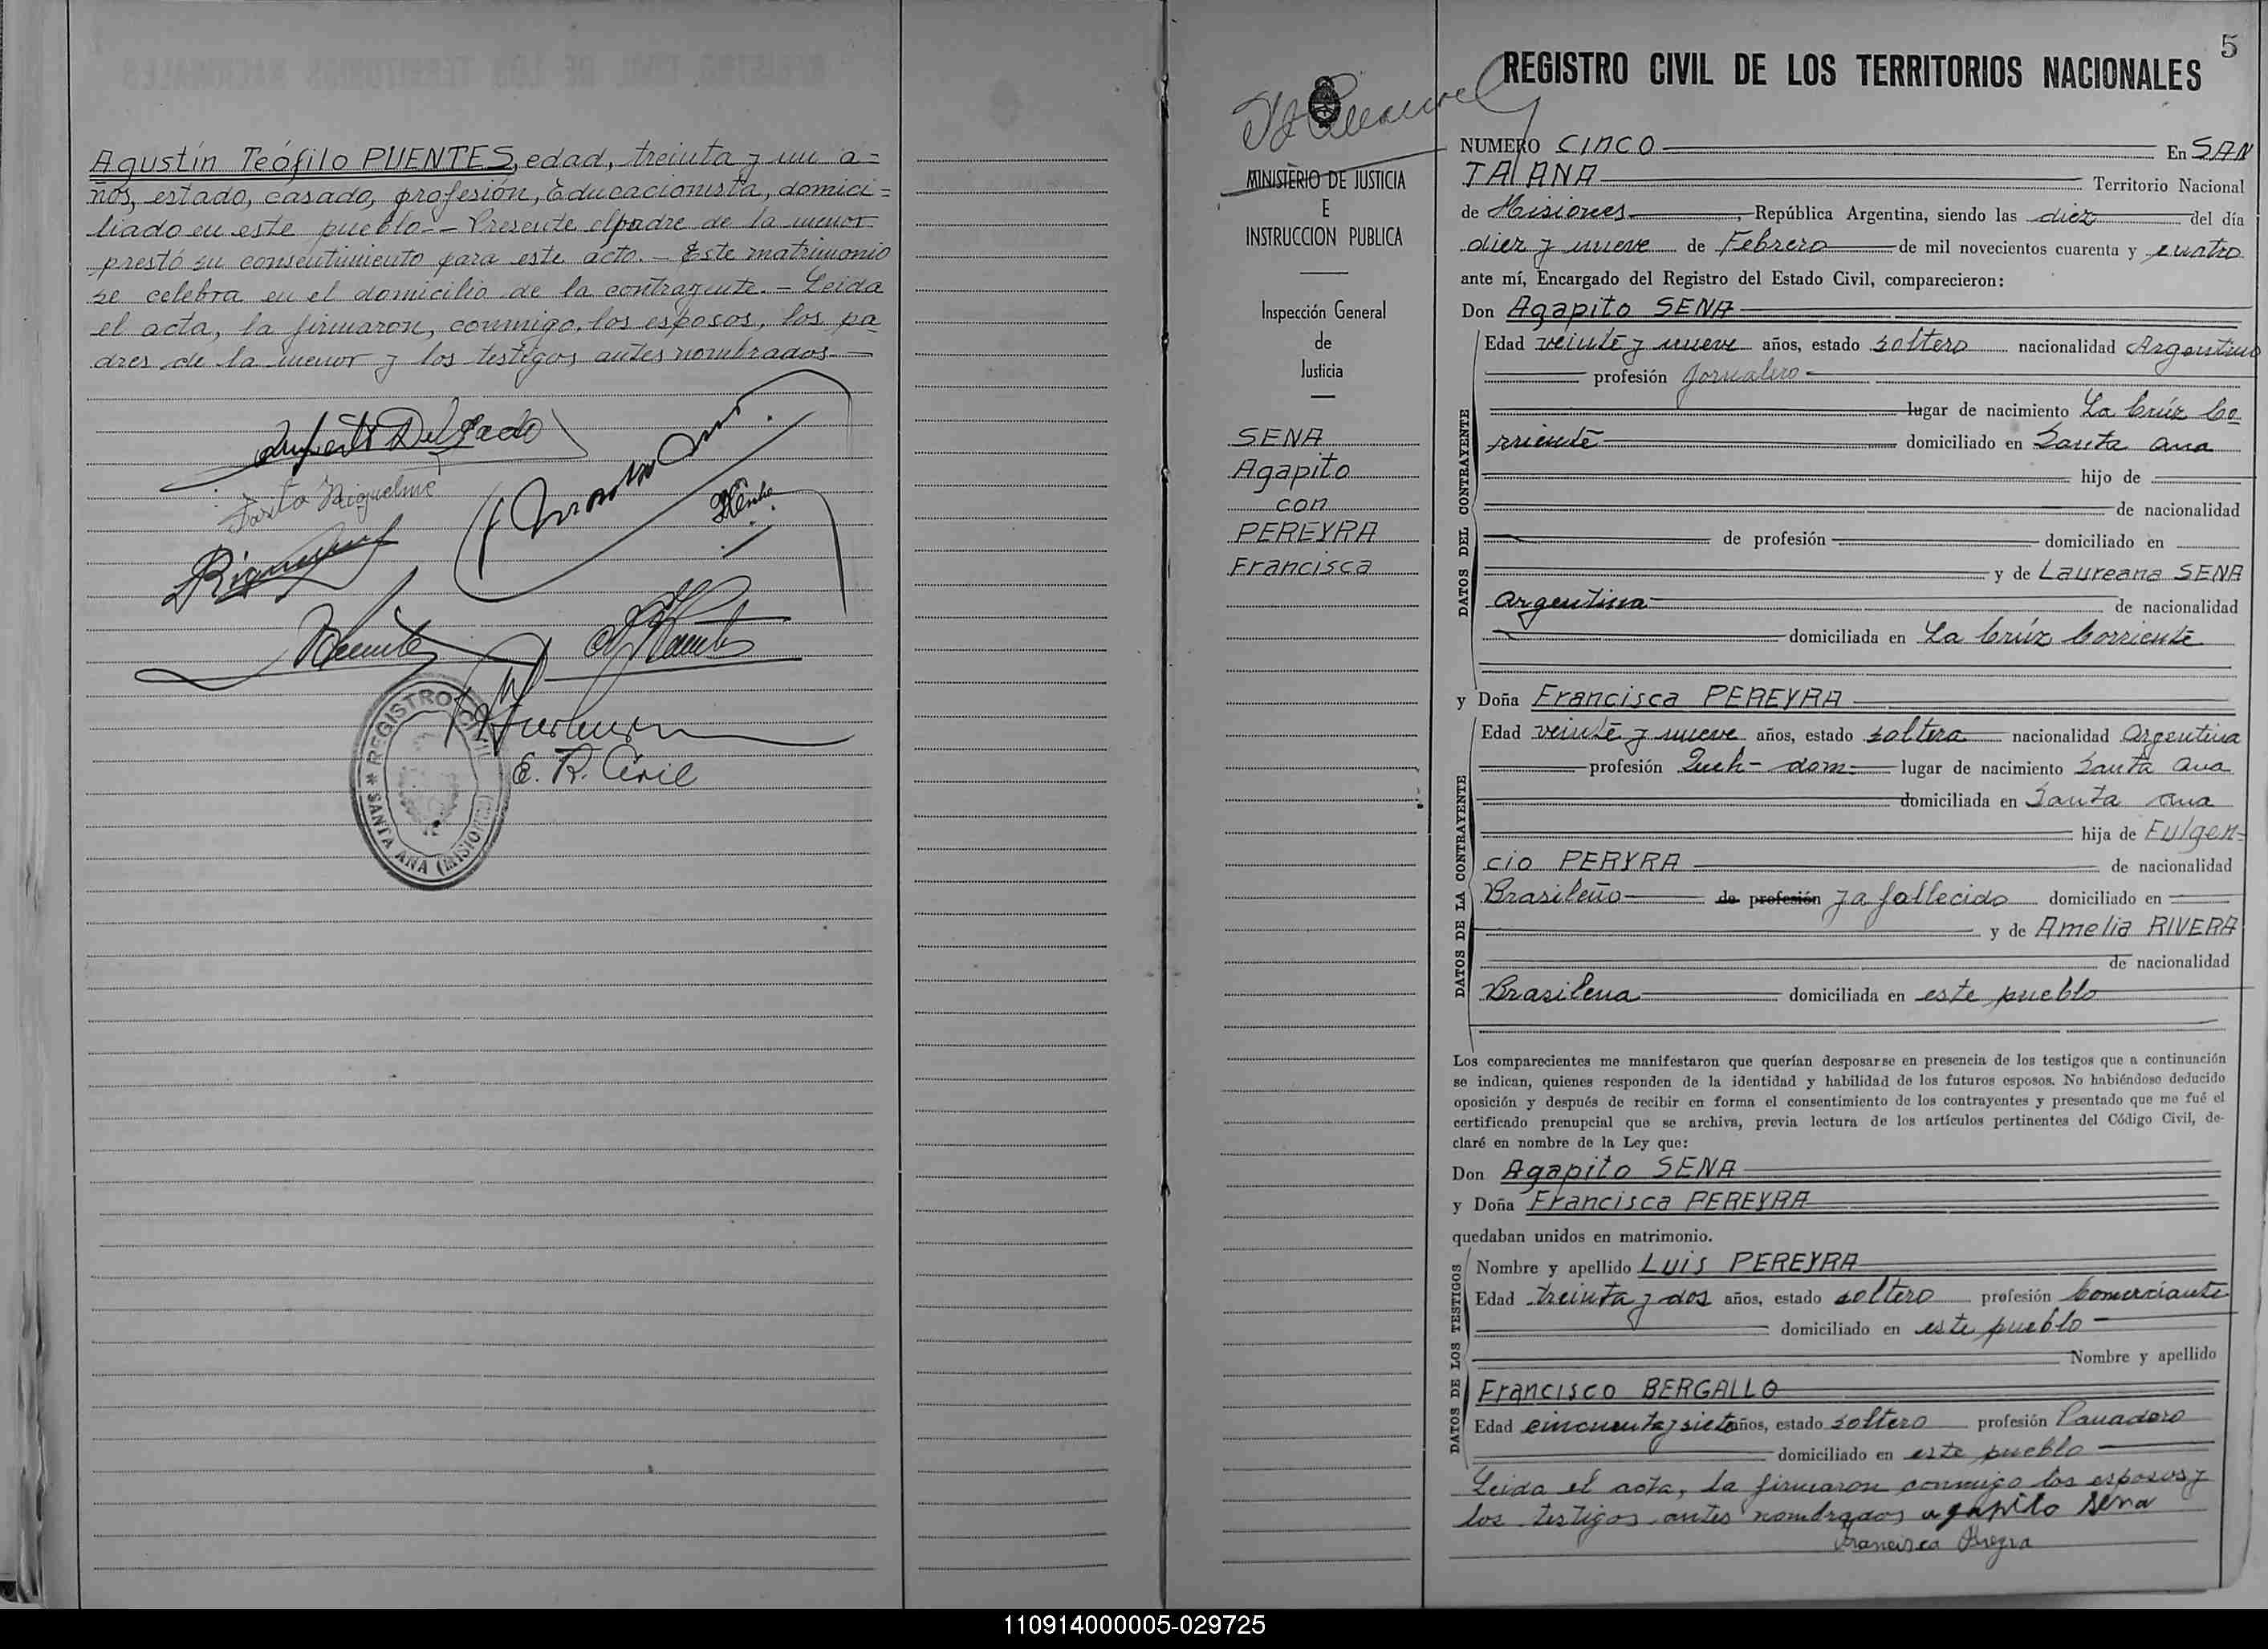 Agustín Teófilo PUENTES, edad, treinta y un a=
ños, estado, casado, profesión, Educacionista, domici=
liado en este pueblo.- Presente el padre de la menor
prestó su consentimiento para este acto.- Este matrimonio
se celebra en el domicilio de la contrayente.- Leida
el acta, la firmaron, conmigo, los esposos, los pa
dres de la menor y los testigos antes nombrados.-
Delgado
Riquelme
E. R. Civil
REGISTRO CIVIL
SANTA ANA (MISIONES)
5
REGISTRO CIVIL DE LOS TERRITORIOS NACIONALES
MINISTERIO DE JUSTICIA
E
INSTRUCCION PUBLICA
Inspección General
de
Justicia
SENA
Agapito
con
PEREYRA
Francisca
NUMERO CINCO En SAN
TA ANA Territorio Nacional
de Misiones, República Argentina, siendo las diez del día
diez y nueve de Febrero de mil novecientos cuarenta y cuatro
ante mí, Encargado del Registro del Estado Civil, comparecieron:
Don Agapito SENA
DATOS DEL CONTRAYENTE
Edad veinte y nueve años, estado soltero nacionalidad Argentino
profesión Jornalero
lugar de nacimiento La Crúz Co
rriente domiciliado en Santa Ana
hijo de
de nacionalidad
de profesión domiciliado en
y de Laureana SENA
Argentina de nacionalidad
domiciliada en La Crúz Corriente
y Doña Francisca PEREYRA
DATOS DE LA CONTRAYENTE
Edad veinte y nueve años, estado soltera nacionalidad Argentina
profesión Queh- dom- lugar de nacimiento Santa Ana
domiciliada en Santa Ana
hija de Fulgen-
cio PERYRA de nacionalidad
Brasileño de profesión ya fallecido domiciliado en
y de Amelia RIVERA
de nacionalidad
Brasilena domiciliada en este pueblo
Los comparecientes me manifestaron que querían desposarse en presencia de los testigos que a continuación
se indican, quienes responden de la identidad y habilidad de los futuros esposos. No habiéndose deducido
oposición y después de recibir en forma el consentimiento de los contrayentes y presentado que me fué el
certificado prenupcial que se archiva, previa lectura de los artículos pertinentes del Código Civil, de-
claré en nombre de la Ley que:
Don Agapito SENA
y Doña Francisca PEREYRA
quedaban unidos en matrimonio.
DATOS DE LOS TESTIGOS
Nombre y apellido Luis PEREYRA
Edad treinta y dos años, estado soltero profesión Comerciante
domiciliado en este pueblo
Nombre y apellido
Francisco BERGALLO
Edad cincuenta y siete años, estado soltero profesión Panadero
domiciliado en este pueblo
Leida el acta, la firmaron conmigo los esposos y
los testigos antes nombrados agapito Sena
Francisca Pereyra
110914000005-029725